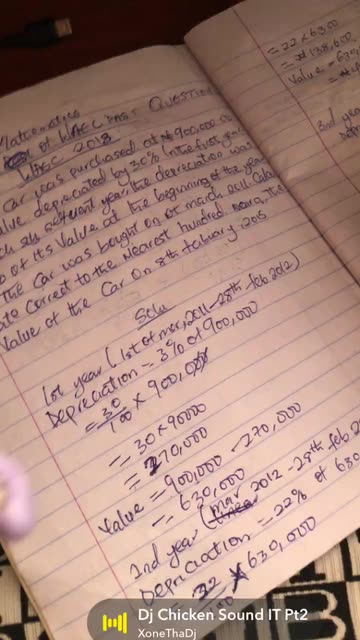 Mathematics
of WAEC PAST QUESTION
WAEC 2018
Car was purchased at ₦900,000.00
value depreciated by 30% in the first year
subsequent year the depreciation was
of its value at the beginning of the year
The Car was bought on 1st march 2011. Calcu
ate correct to the nearest hundred naira, the
Value of the Car on 28th february 2015
Solu
1st year (1st of mar, 2011 - 28th feb 2012)
Depreciation = 3% of 900,000
= 30/100 × 900,000
= 30 × 9000
= 270,000
Value = 900,000 - 270,000
= 630,000
2nd year (mar 2012 - 28th feb 20
Depreciation = 22% of 630
22/100 × 630,000
= 22 × 6300
= ₦138,600
Value = 630
= ₦
3rd year
Dj Chicken Sound IT Pt2
XoneThaDj